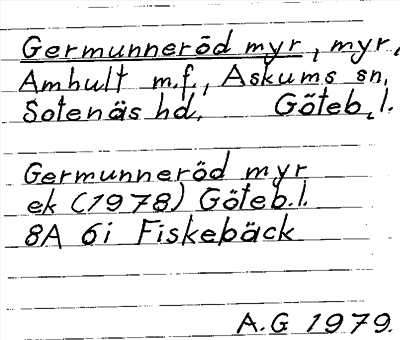 Germunneröd myr, myr,
Amhult m.fl., Askums sn,
Sotenäs hd, Göteb.l.
Germunneröd myr
ek (1978) Göteb.l.
8A 6i Fiskebäck
A.G 1979.